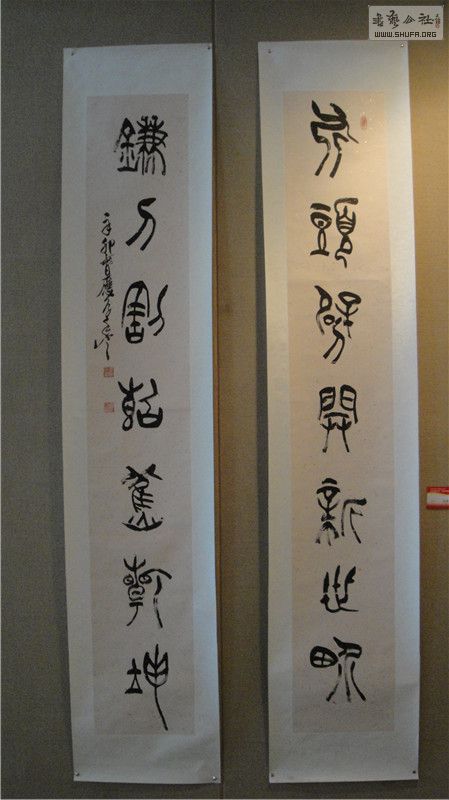 斧頭劈開新世界
鎌刀割斷舊乾坤
辛卯
書藝公社
WWW.SHUFA.ORG